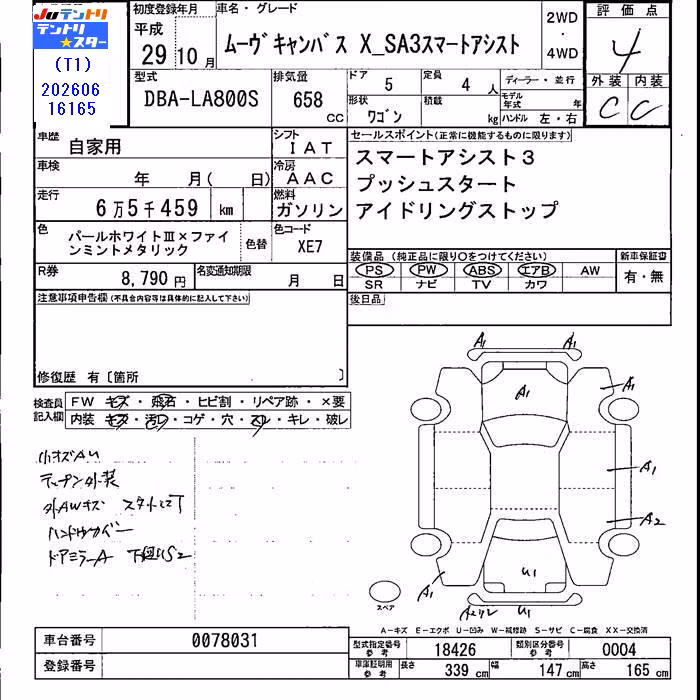 JU テントリ
テントリ★スター
(T1)
202606
16165
初度登録年月
平成
29 10月
車名・グレード
ムーヴキャンバス X_SA3スマートアシスト
2WD
・
4WD
評価点
4
外装 内装
C C
型式
DBA-LA800S
排気量
658
CC
ドア
5
定員
4 人
ディーラー・並行
形状
ワゴン
積載
kg
モデル年式 年
ハンドル 左・右
車歴
自家用
シフト
IAT
車検
年 月( 日)
冷房
AAC
走行
6万5千459 km
燃料
ガソリン
色
パールホワイトⅢ×ファイ
ンミントメタリック
色替
色コード
XE7
R券
8,790 円
名変通知期限
月 日
セールスポイント(正常に機能するものに限ります)
スマートアシスト3
プッシュスタート
アイドリングストップ
装備品 (純正品に限り〇をつけてください)
PS PW ABS エアB AW
SR ナビ TV カワ
新車保証書
有・無
後日品
注意事項申告欄(不具合内容等は具体的に記入して下さい)
修復歴 有〔箇所 〕
検査員
記入欄
FW キズ・飛石・ヒビ割・リペア跡・×要
内装 キズ・汚レ・コゲ・穴・スレ・キレ・破レ
小キズAU
外AWキズ
ハンドルカバー
ドアミラーA
A1
A1
A1
A1
A1
A2
A1
U1
U1
スペア
A-キズ E-エクボ U-凹み W-補修跡 S-サビ C-腐食 XX-交換済
車台番号
0078031
登録番号
型式指定番号
参考
18426
類別区分番号
参考
0004
車庫証明用
参考
長さ 339 cm 幅 147 cm 高さ 165 cm